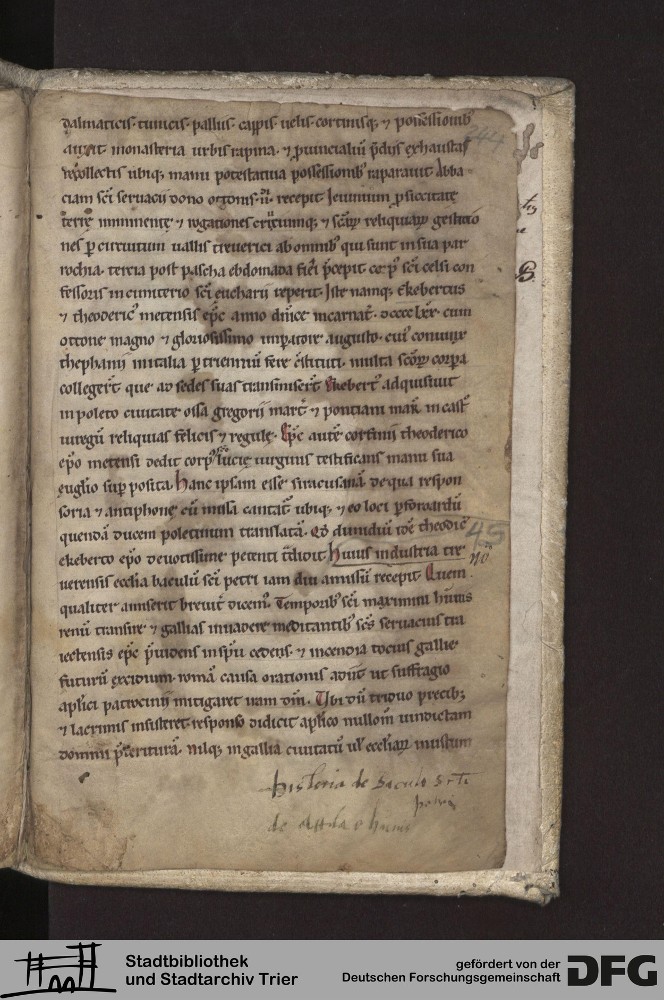 dalmaticis· tunicis· palliis· cappis· uelis· cortinisq; ⁊ possessionib'
auxit· monasteria urbis rapina· ⁊ puincialiū p̄diis exhausta
recollectis ubiq; manu potestatiua possessionib' raparauit Abba
ciam sc̄i seruacii dono ottonis· ii· recepit Ieiunium p siccitate
terrę imminente ⁊ rogationes cruciumq; ⁊ sc̄oꝝ reliquiaꝝ gestatio
nes p circuitum uallis treuerici ab omnib' qui sunt in sua par
rochia· tercia post pascha ebdomada fieri p̄cepit corp' sc̄i celsi con
fessoris in cimiterio sc̄i eucharii reperit· Iste namq; Ekebertus
⁊ theoderic' metensis ep̄c anno dn̄ice incarnat̄· dcccclxx· cum
ottone magno ⁊ gloriosissimo impatore augusto· cui' coniuge
thephanii in italia p trienniū fere c̄stituti· multa sc̄oꝝ corpa
collegert̄ que ad sedes suas transmisert̄ Ekebert' adquisiuit
in poleto ciuitate ossa gregorii mart̄ ⁊ pontiani mar̄ in cast̄
reliquias felicis ⁊ regulę· Ep̄c autē corfinii theoderico
ep̄o metensi dedit corp' lucię uirginis testificans manu sua
euglio sup posita· hanc ipsam esse siracusanā· de qua respon
soria ⁊ antiphonę cū missa cantat̄ ubiq; ⁊ eo loci p forwardū
quendā ducem poletinum translatā· Cui' dimidiū idē theodic̄
ekeberto ep̄o deuotissime petenti t̄didit huius industria tre
uerensis ecclia baculū sc̄i petri iam diu amissū recepit Quem
qualiter amiserit breuit̄ dicem' Temporib' sc̄i maximini hunis
renū transire ⁊ gallias inuadere meditantib' sc̄s seruacius tra
iectensis ep̄c p̄uidens in sp̄u cedens· ⁊ incendia tocius gallie
futurū excidium· romā causa orationis adiit ut suffragio
aplici patrocinii mitigaret iram dn̄i· Vbi dū triduo precib;
⁊ lacrimis insisteret· responso didicit aplico nullom̄ uindictam
domini p̄teriturā· nilq; in gallia ciuitatū ul' eccliaꝝ
244
45
no
historia de baculo scti
petri
de attila e hunis
Stadtbibliothek
und Stadtarchiv Trier
gefördert von der
Deutschen Forschungsgemeinschaft
DFG